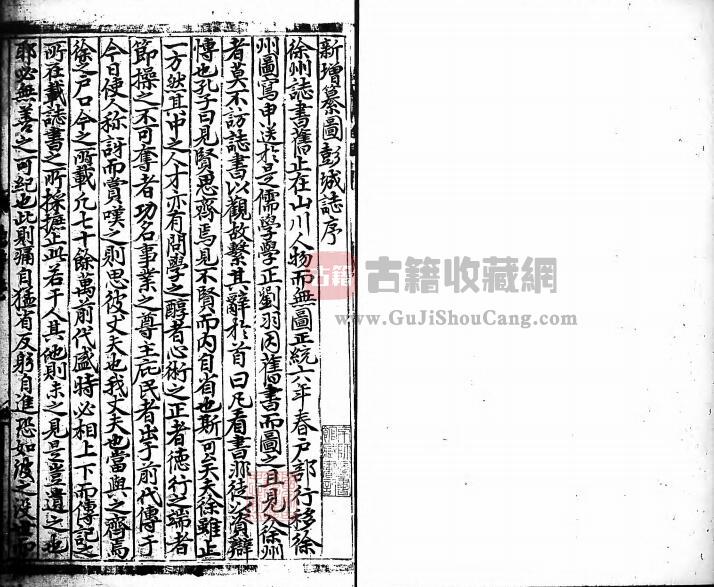 新增纂圖彭城誌序
徐州誌書舊止在山川人物而無圖正統六年春戶部行移徐
州圖寫申送於是儒學學正劉羽因舊書而圖之且見徐州
者莫不訪誌書以觀故繫其辭於首曰凡看書非徒以資辯
博也孔子曰見賢思齊焉見不賢而內自省也斯可矣夫徐雖止
一方然其中之人才亦有問學之醇者心術之正者德行之端者
節操之不可奪者功名事業之尊主庇民者出于前代傳于
今日使人稱訝而賞嘆之則思彼丈夫也我丈夫也當與之齊焉
徐之戶口今之所載凡七十餘萬前代盛時必相上下而傳記之
所在載誌書之所採摭止此若于人其他則未之見是豈遺之也
耶必無善之可紀也此則痛自猛省反躬自進恐如彼之沒世而
古籍
古籍收藏網
www.GuJiShouCang.com